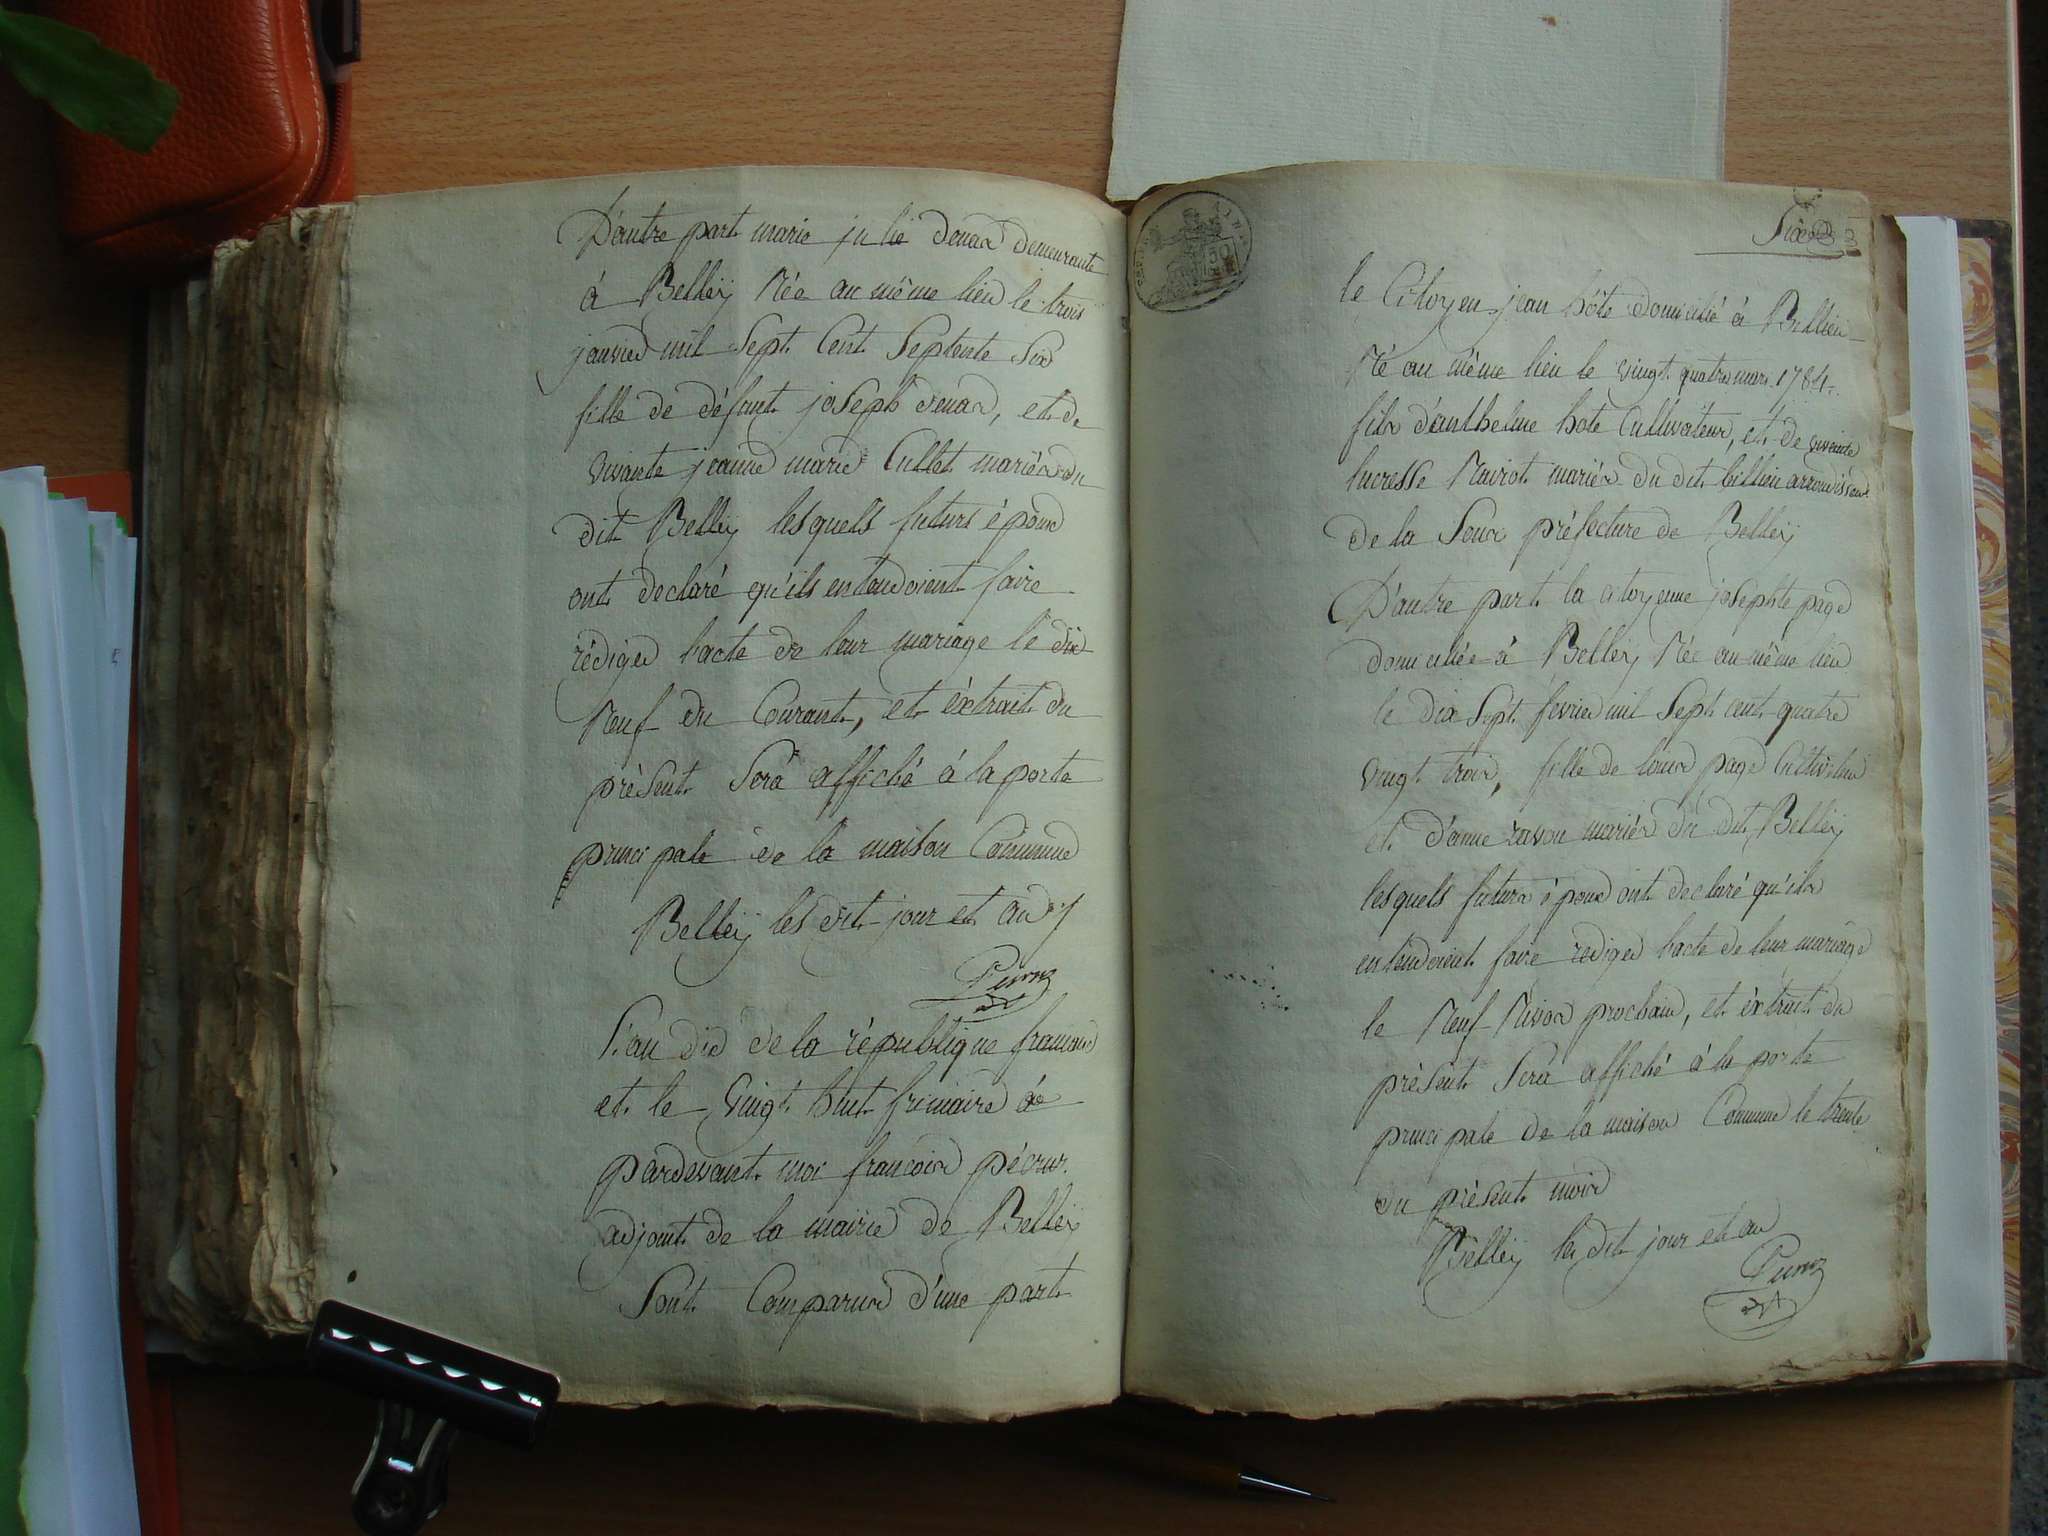 D'autre part marie julie demeurante
à Belleÿ Née au même lieu le trois
janvier mil Sept Cent Septente Six
fille de défunt joSeph, et de
vivante jeanne marie Cullet mariés du
dit Belleÿ lesquels futurs époux
ont declaré qu'ils entendoient faire
rédiger l'acte de leur mariage le dix
Neuf du Courant, et éxtrait du
prèSent Sera affiché à la porte
principale de la maison Commune
Belleÿ les dit jour et an
L'an dix de la rèpublique francaise
et le vingt huit frimaire
pardevant moi francois
adjoint de la mairie de Belleÿ
Sont Comparus d'une part
Six
50
le Citoyen jean hôte domicilié à Billieu
Né au même lieu le vingt quatre mars 1784
fils d'anthelme hote Cultivateur, et de vivante
lucresse mariés du dit billieu arrondissemt
de la Sous prèfecture de Belleÿ
D'autre part la citoyenne joSephte page
domiciliée à Belleÿ Née au même lieu
le dix Sept fevrier mil Sept cent quatre
vingt trois, fille de louis page Cultivateur
et d'anne ravou mariés du dit Belleÿ
lesquels futurs époux ont declaré qu'ils
entendoient faire rediger l'acte de leur mariage
le Neuf Nivos prochain, et éxtrait du
prèSent Sera affiché à la porte
principale de la maison Commune le trente
du prèSent mois
Belleÿ les dit jour et an